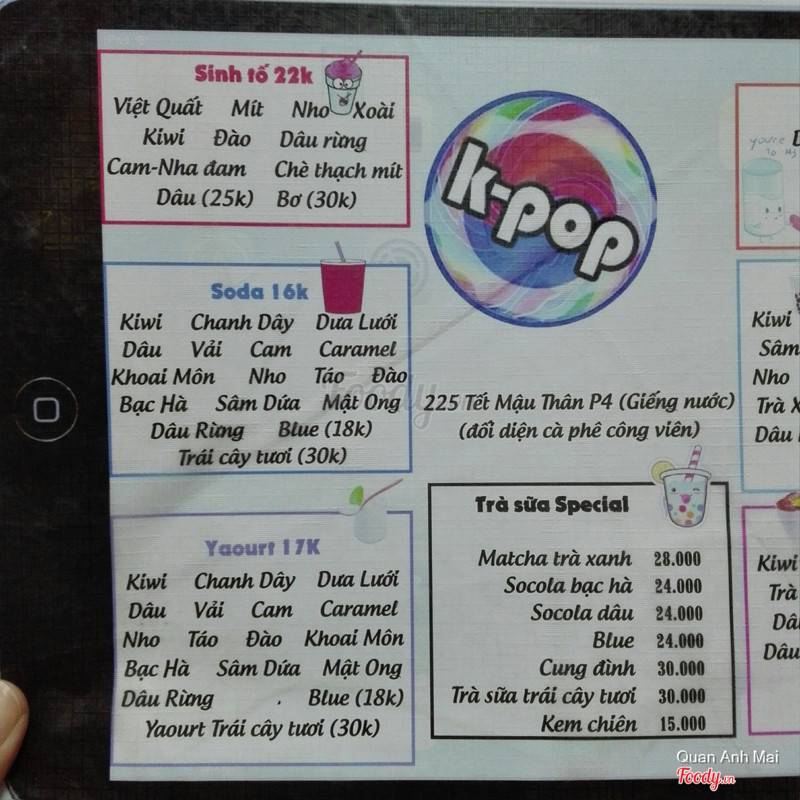 Sinh tố 22k
Việt Quất Mít Nho Xoài
Kiwi Đào Dâu rừng
Cam-Nha đam Chè thạch mít
Dâu (25k) Bơ (30k)
Soda 16k
Kiwi Chanh Dây Dưa Lưới
Dâu Vải Cam Caramel
Khoai Môn Nho Táo Đào
Bạc Hà Sâm Dứa Mật Ong
Dâu Rừng Blue (18k)
Trái cây tươi (30k)
Yaourt 17K
Kiwi Chanh Dây Dưa Lưới
Dâu Vải Cam Caramel
Nho Táo Đào Khoai Môn
Bạc Hà Sâm Dứa Mật Ong
Dâu Rừng Blue (18k)
Yaourt Trái cây tươi (30k)
k-pop
225 Tết Mậu Thân P4 (Giếng nước)
(đối diện cà phê công viên)
Trà sữa Special
Matcha trà xanh 28.000
Socola bạc hà 24.000
Socola dâu 24.000
Blue 24.000
Cung đình 30.000
Trà sữa trái cây tươi 30.000
Kem chiên 15.000
you're
to
Kiwi
Sâm
Nho
Trà
Dâu
Kiwi
Trà
Dâu
Foody
Quan Anh Mai
Foody.vn